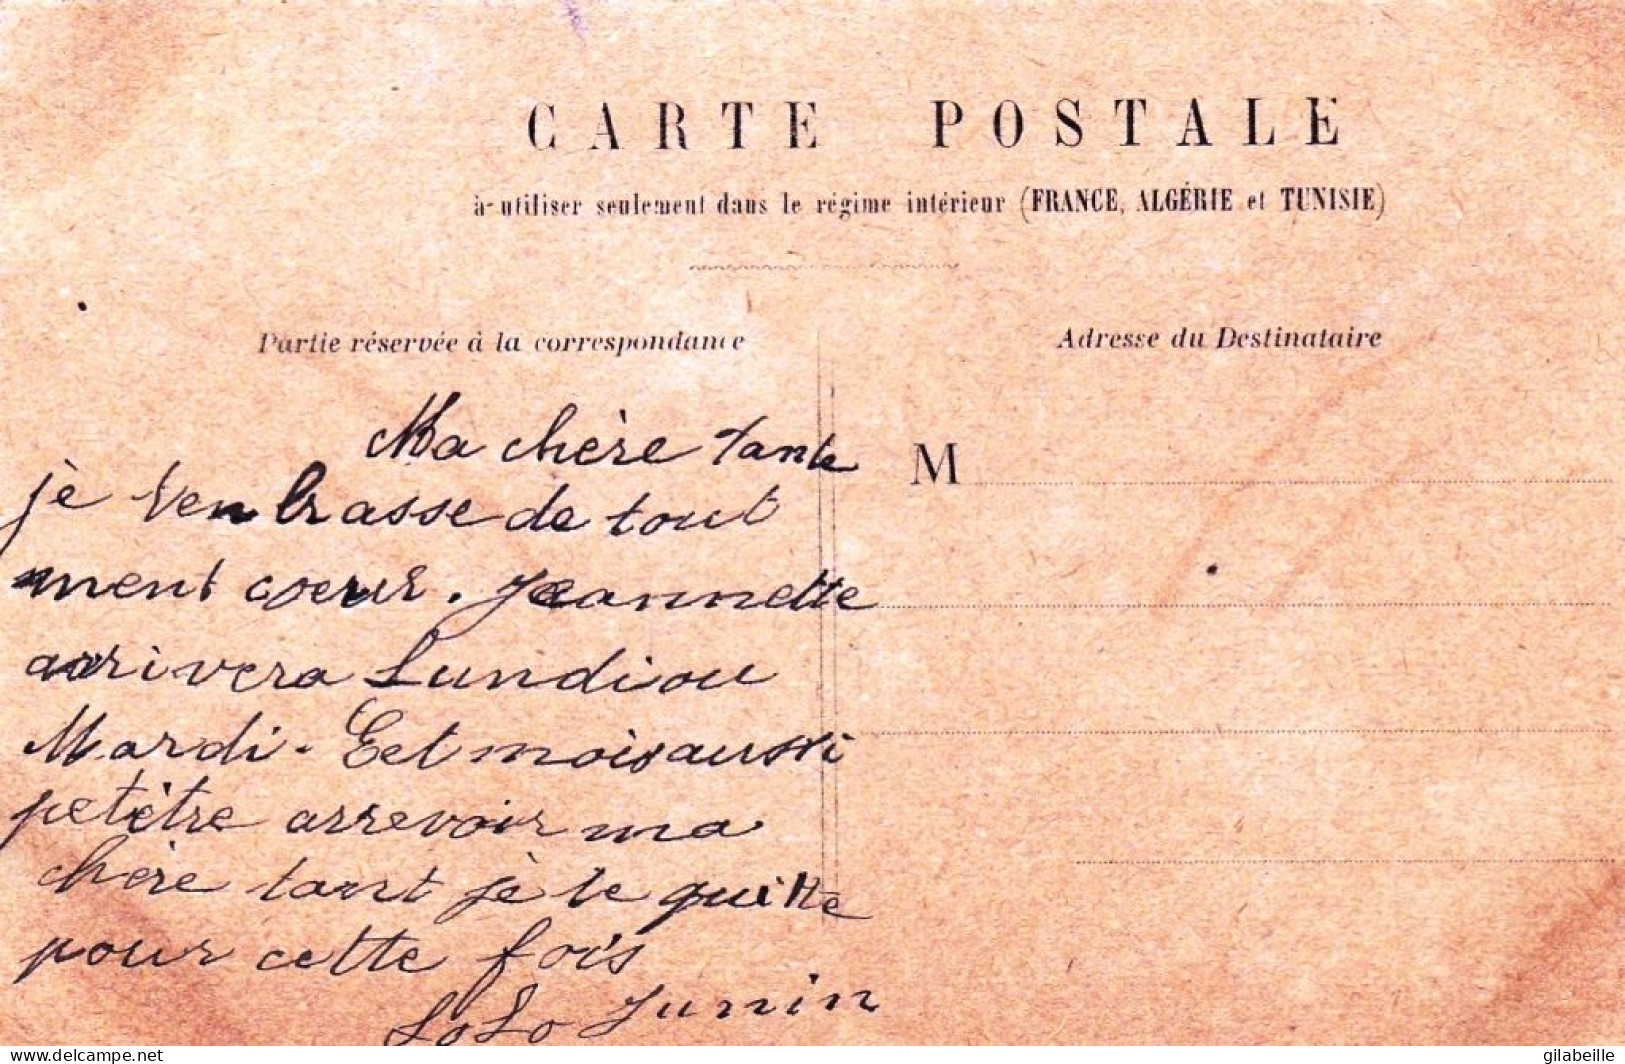 CARTE POSTALE
à utiliser seulement dans le régime intérieur (FRANCE, ALGÉRIE et TUNISIE)
Partie réservée à la correspondance
Adresse du Destinataire
M
Ma chère tante
jè t'enbrasse de tout
ment coeur. Jeannette
arrivera Lundi ou
Mardi. Eet mois aussi
petètre arrevoir ma
chère tant jè te quitte
pour cette fois
LoLo
delcampe.net
gilabeille